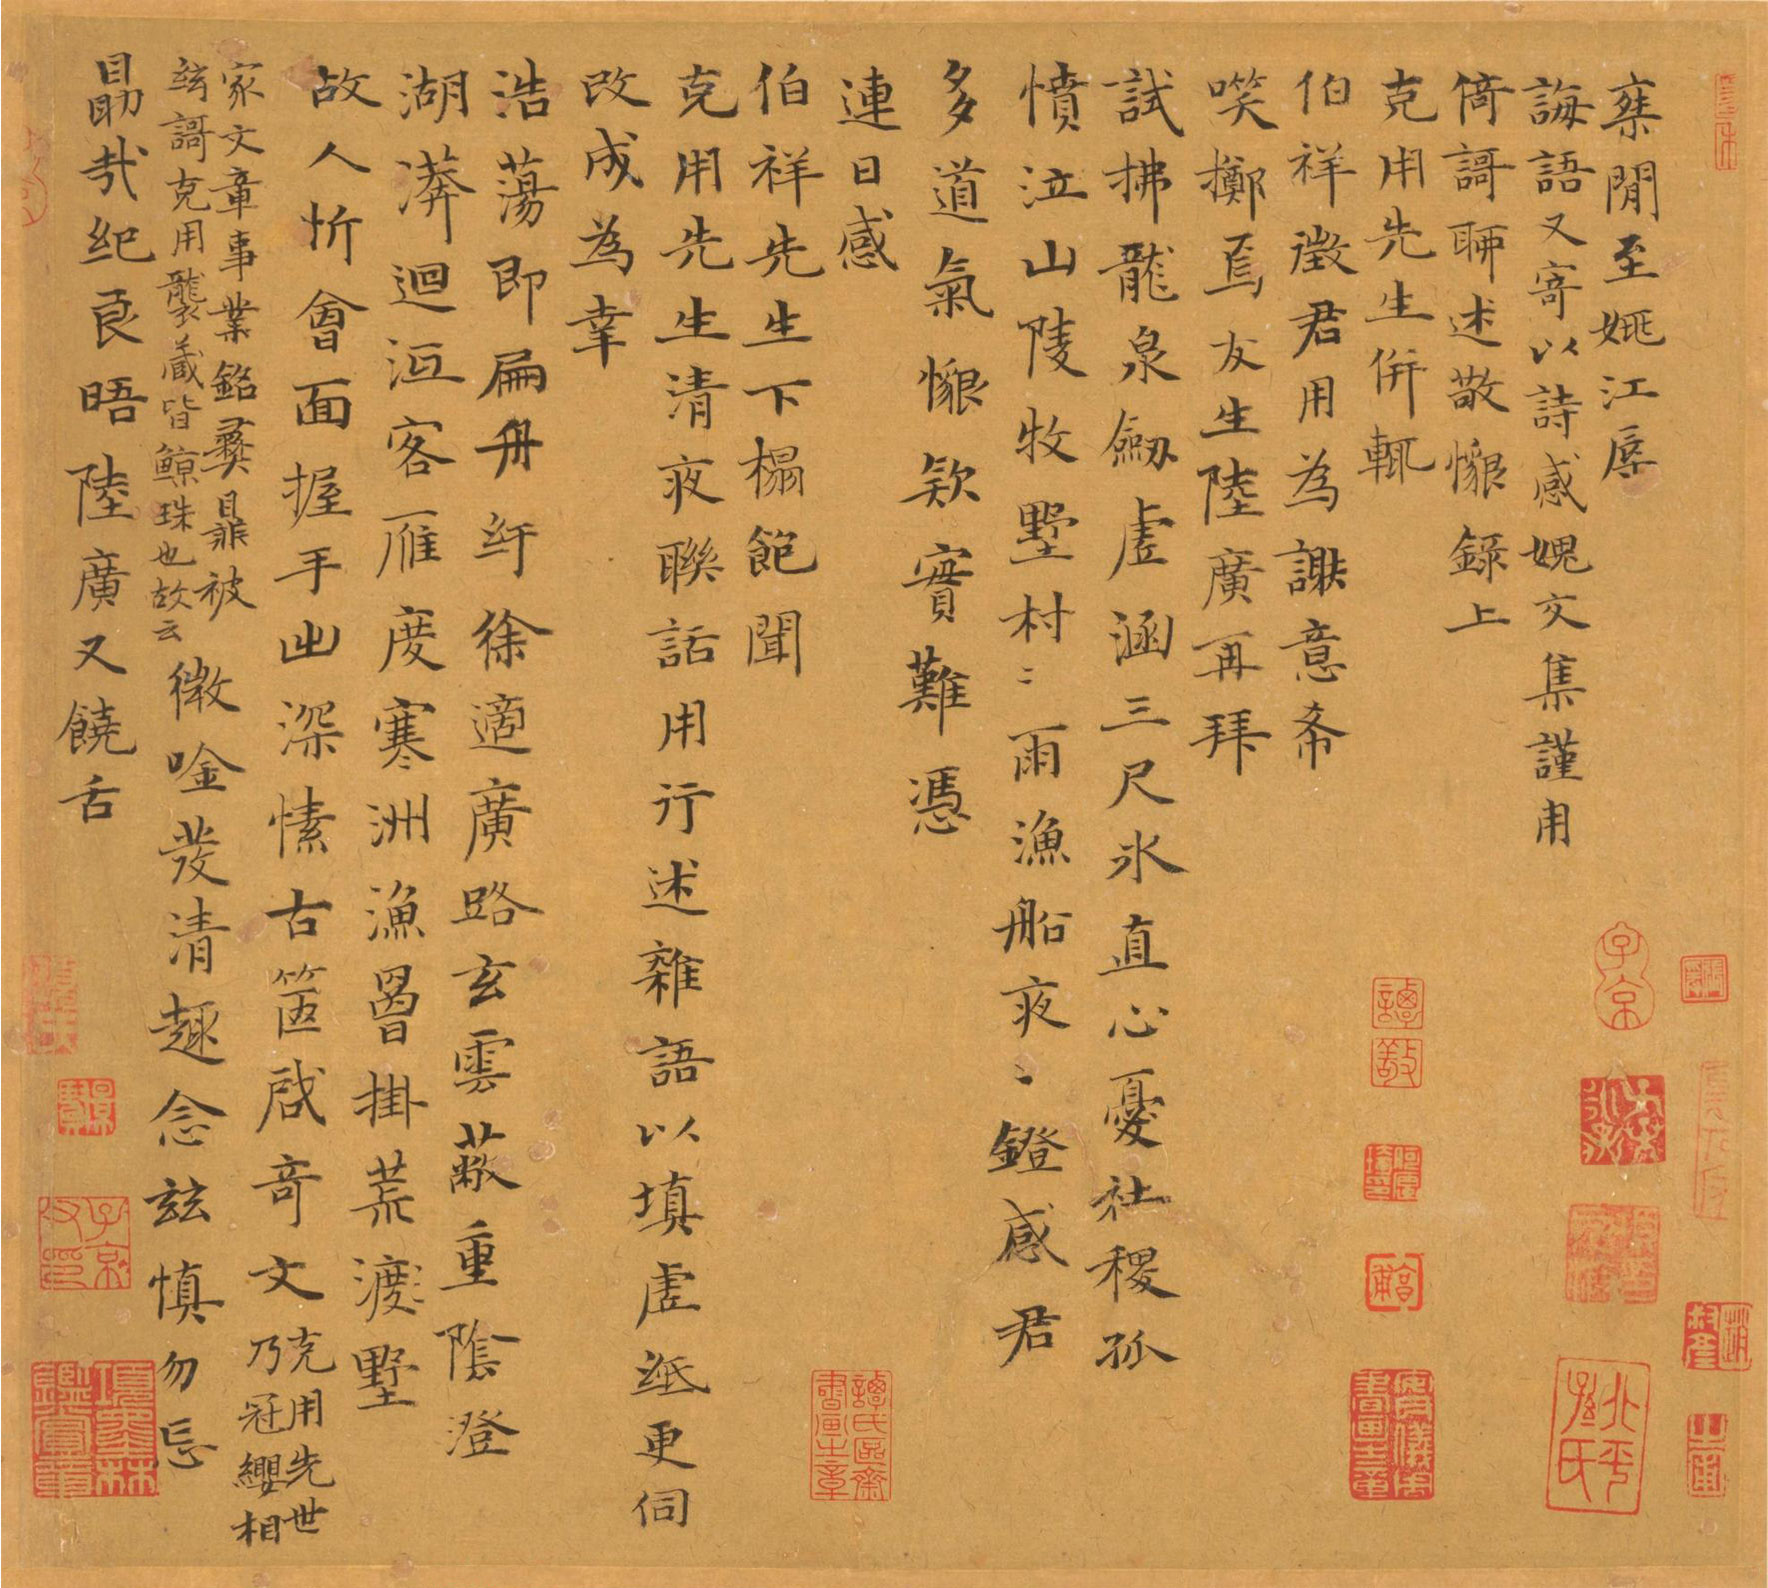 棄閒至姚江辱
誨語又寄以詩感媿交集謹用
倚謌聊述敬懷錄上
克用先生併輒
伯祥徵君用為謝意希
咲擲焉友生陸廣再拜
試拂龍泉劒虛涵三尺冰直心憂社稷孤
憤泣山陵牧墅村〻雨漁船夜〻鐙感君
多道氣懷欵實難憑
連日感
伯祥先生下榻飽聞
克用先生清夜聯話用行述雜語以填虛紙更伺
改成為幸
浩蕩即扁舟紆徐適廣路玄雲蔽重陰澄
湖漭迴沍客雁度寒洲漁罾掛荒渡墅
故人忻會面握手出深愫古篋啟奇文
克用先世
乃冠纓相
家文章事業銘彝鼎被
玆謌克用襲藏皆鯨珠也故云
微唫發清趣念玆慎勿忘
勗哉紀良晤陸廣又饒舌
子京
北平孫氏
譚敬
譚氏區齋書畫之章
子京父印
項墨林鑑賞章